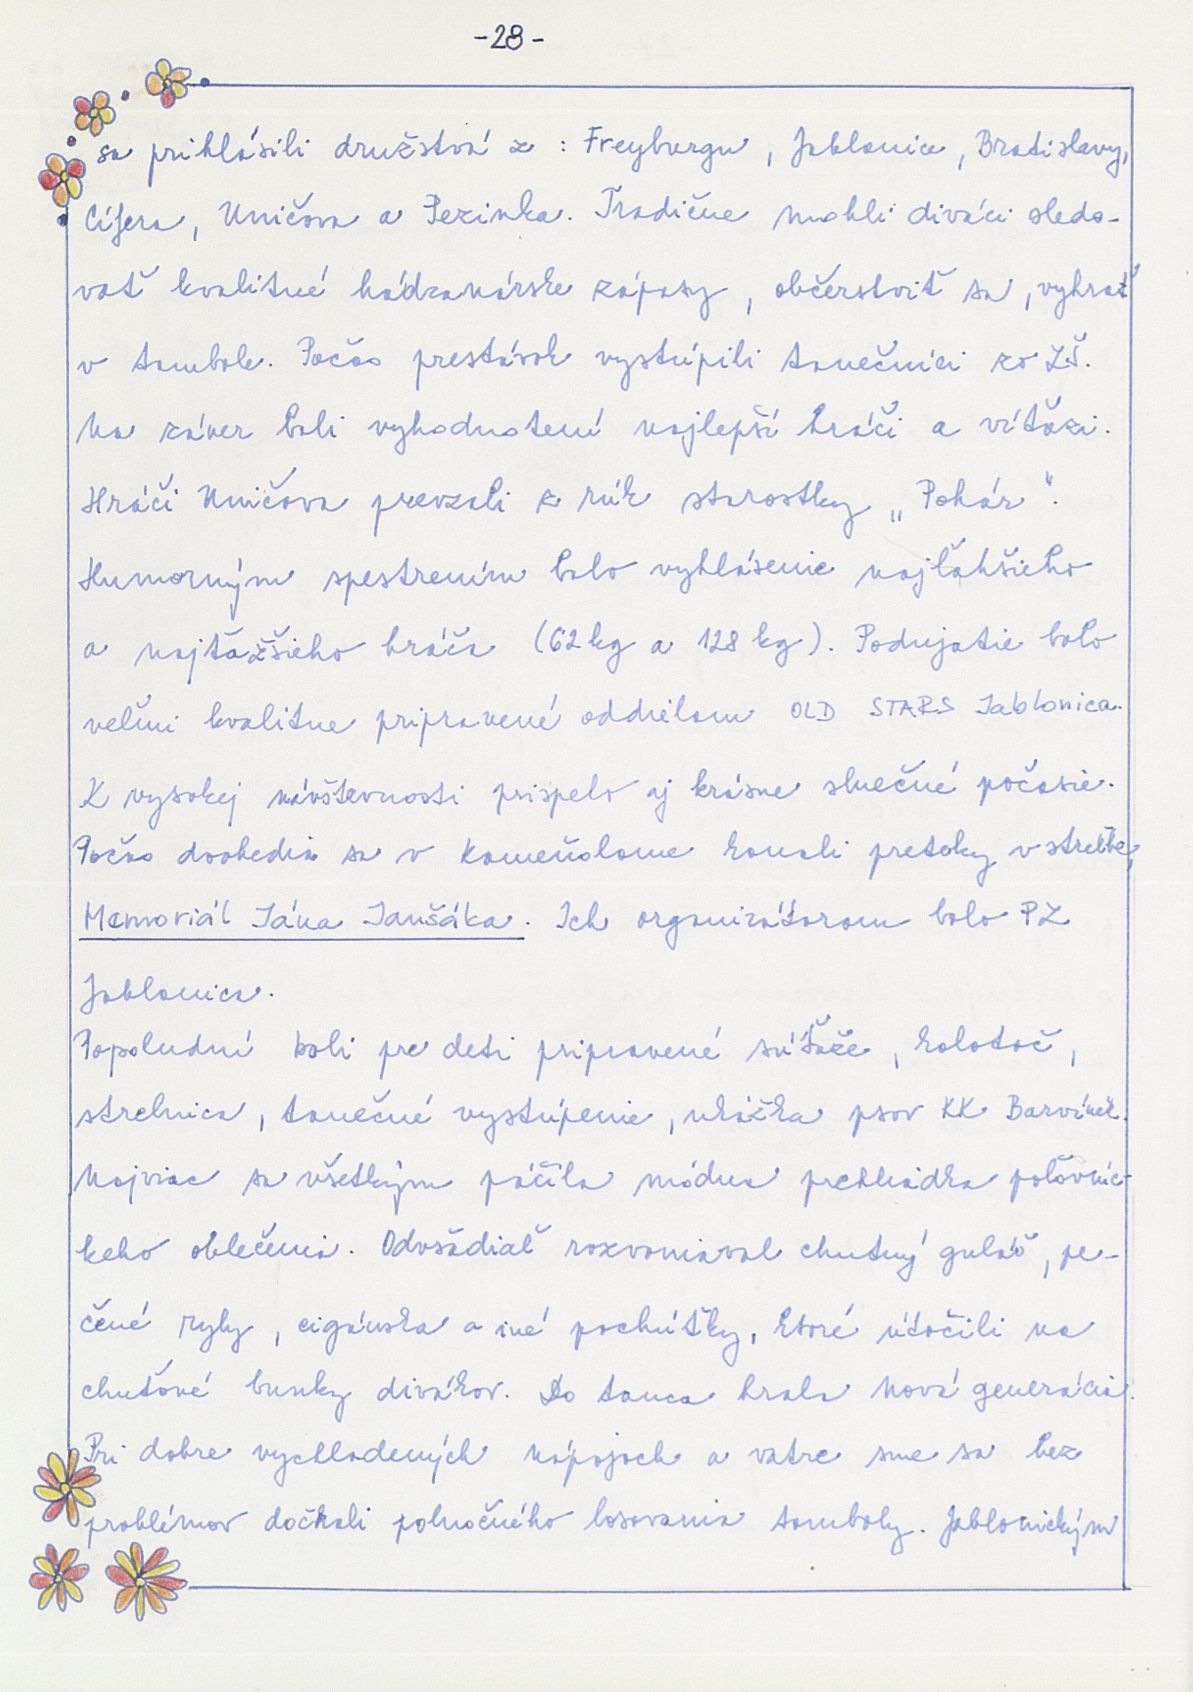 -28-
sa prihlásili družstvá z : Freyburgu, Jablonice, Bratislavy,
Cífera, Uničova a Pezinka. Tradične mohli diváci sledo-
vať kvalitné hádzanárske zápasy, občerstviť sa, vyhrať
v tombole. Počas prestávok vystúpili tanečníci zo ZŠ.
Na záver boli vyhodnotení najlepší hráči a víťazi.
Hráči Uničova prevzali z rúk starostky „Pohár".
Humorným spestrením bolo vyhlásenie najľahšieho
a najťažšieho hráča (62 kg a 128 kg). Podujatie bolo
veľmi kvalitne pripravené oddielom OLD STARS Jablonica.
K vysokej návštevnosti prispelo aj krásne slnečné počasie.
Počas doobedia sa v Kameňolome konali preteky v streľbe,
Memoriál Jána Janšáka. Ich organizátorom bolo PZ
Jablonica.
Popoludní boli pre deti pripravené súťaže, kolotoč,
strelnica, tanečné vystúpenie, ukážka psov KK Barvínek.
Najviac sa všetkým páčila módna prehliadka poľovníc-
keho oblečenia. Odvšadiaľ rozvoniaval chutný guláš, pe-
čené ryby, cigánska a iné pochúťky, ktoré útočili na
chuťové bunky divákov. Do tanca hrala Nová generácia.
Pri dobre vychladených nápojoch a vatre sme sa bez
problémov dočkali polnočného losovania tomboly. Jablonickým